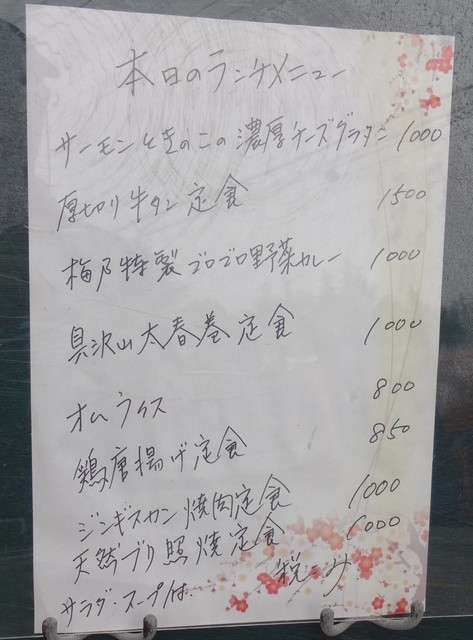 本日のランチメニュー
サーモンときのこの濃厚チーズグラタン 1000
厚切り牛タン定食 1500
梅乃特製ゴロゴロ野菜カレー 1000
具沢山太春巻定食 1000
オムライス 800
鶏唐揚げ定食 850
ジンギスカン焼肉定食 1000
天然ブリ照焼定食 1000
サラダ・スープ付. 税こみ